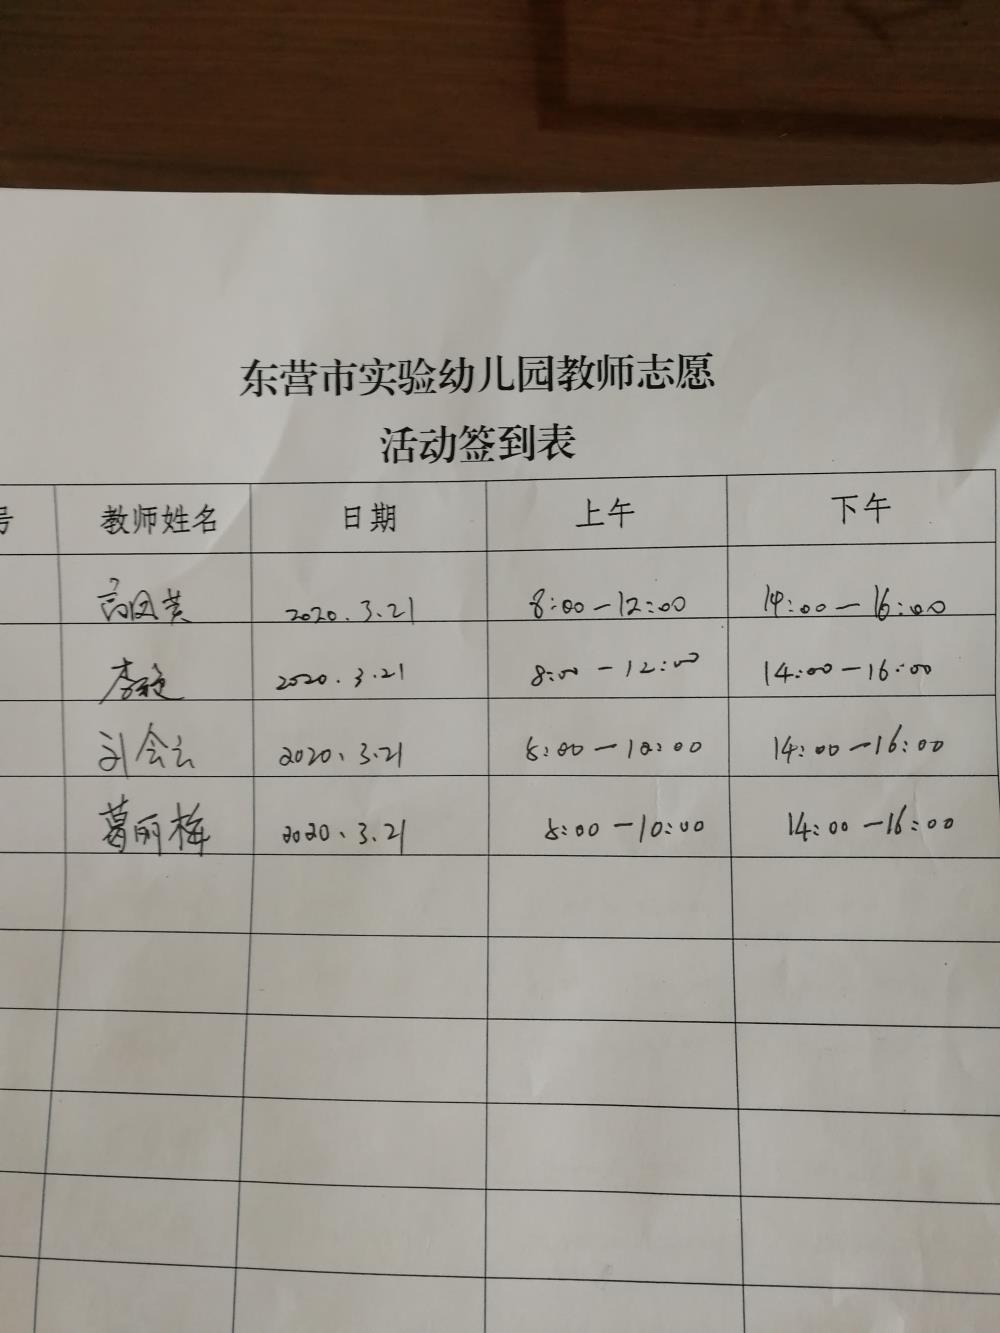 东营市实验幼儿园教师志愿
活动签到表
号 教师姓名 日期 上午 下午
高凤英 2020.3.21 8:00-12:00 14:00-16:00
李 2020.3.21 8:00-12:00 14:00-16:00
刘会云 2020、3.21 8:00-10:00 14:00-16:00
葛丽梅 2020、3.21 8:00-10:00 14:00-16:00